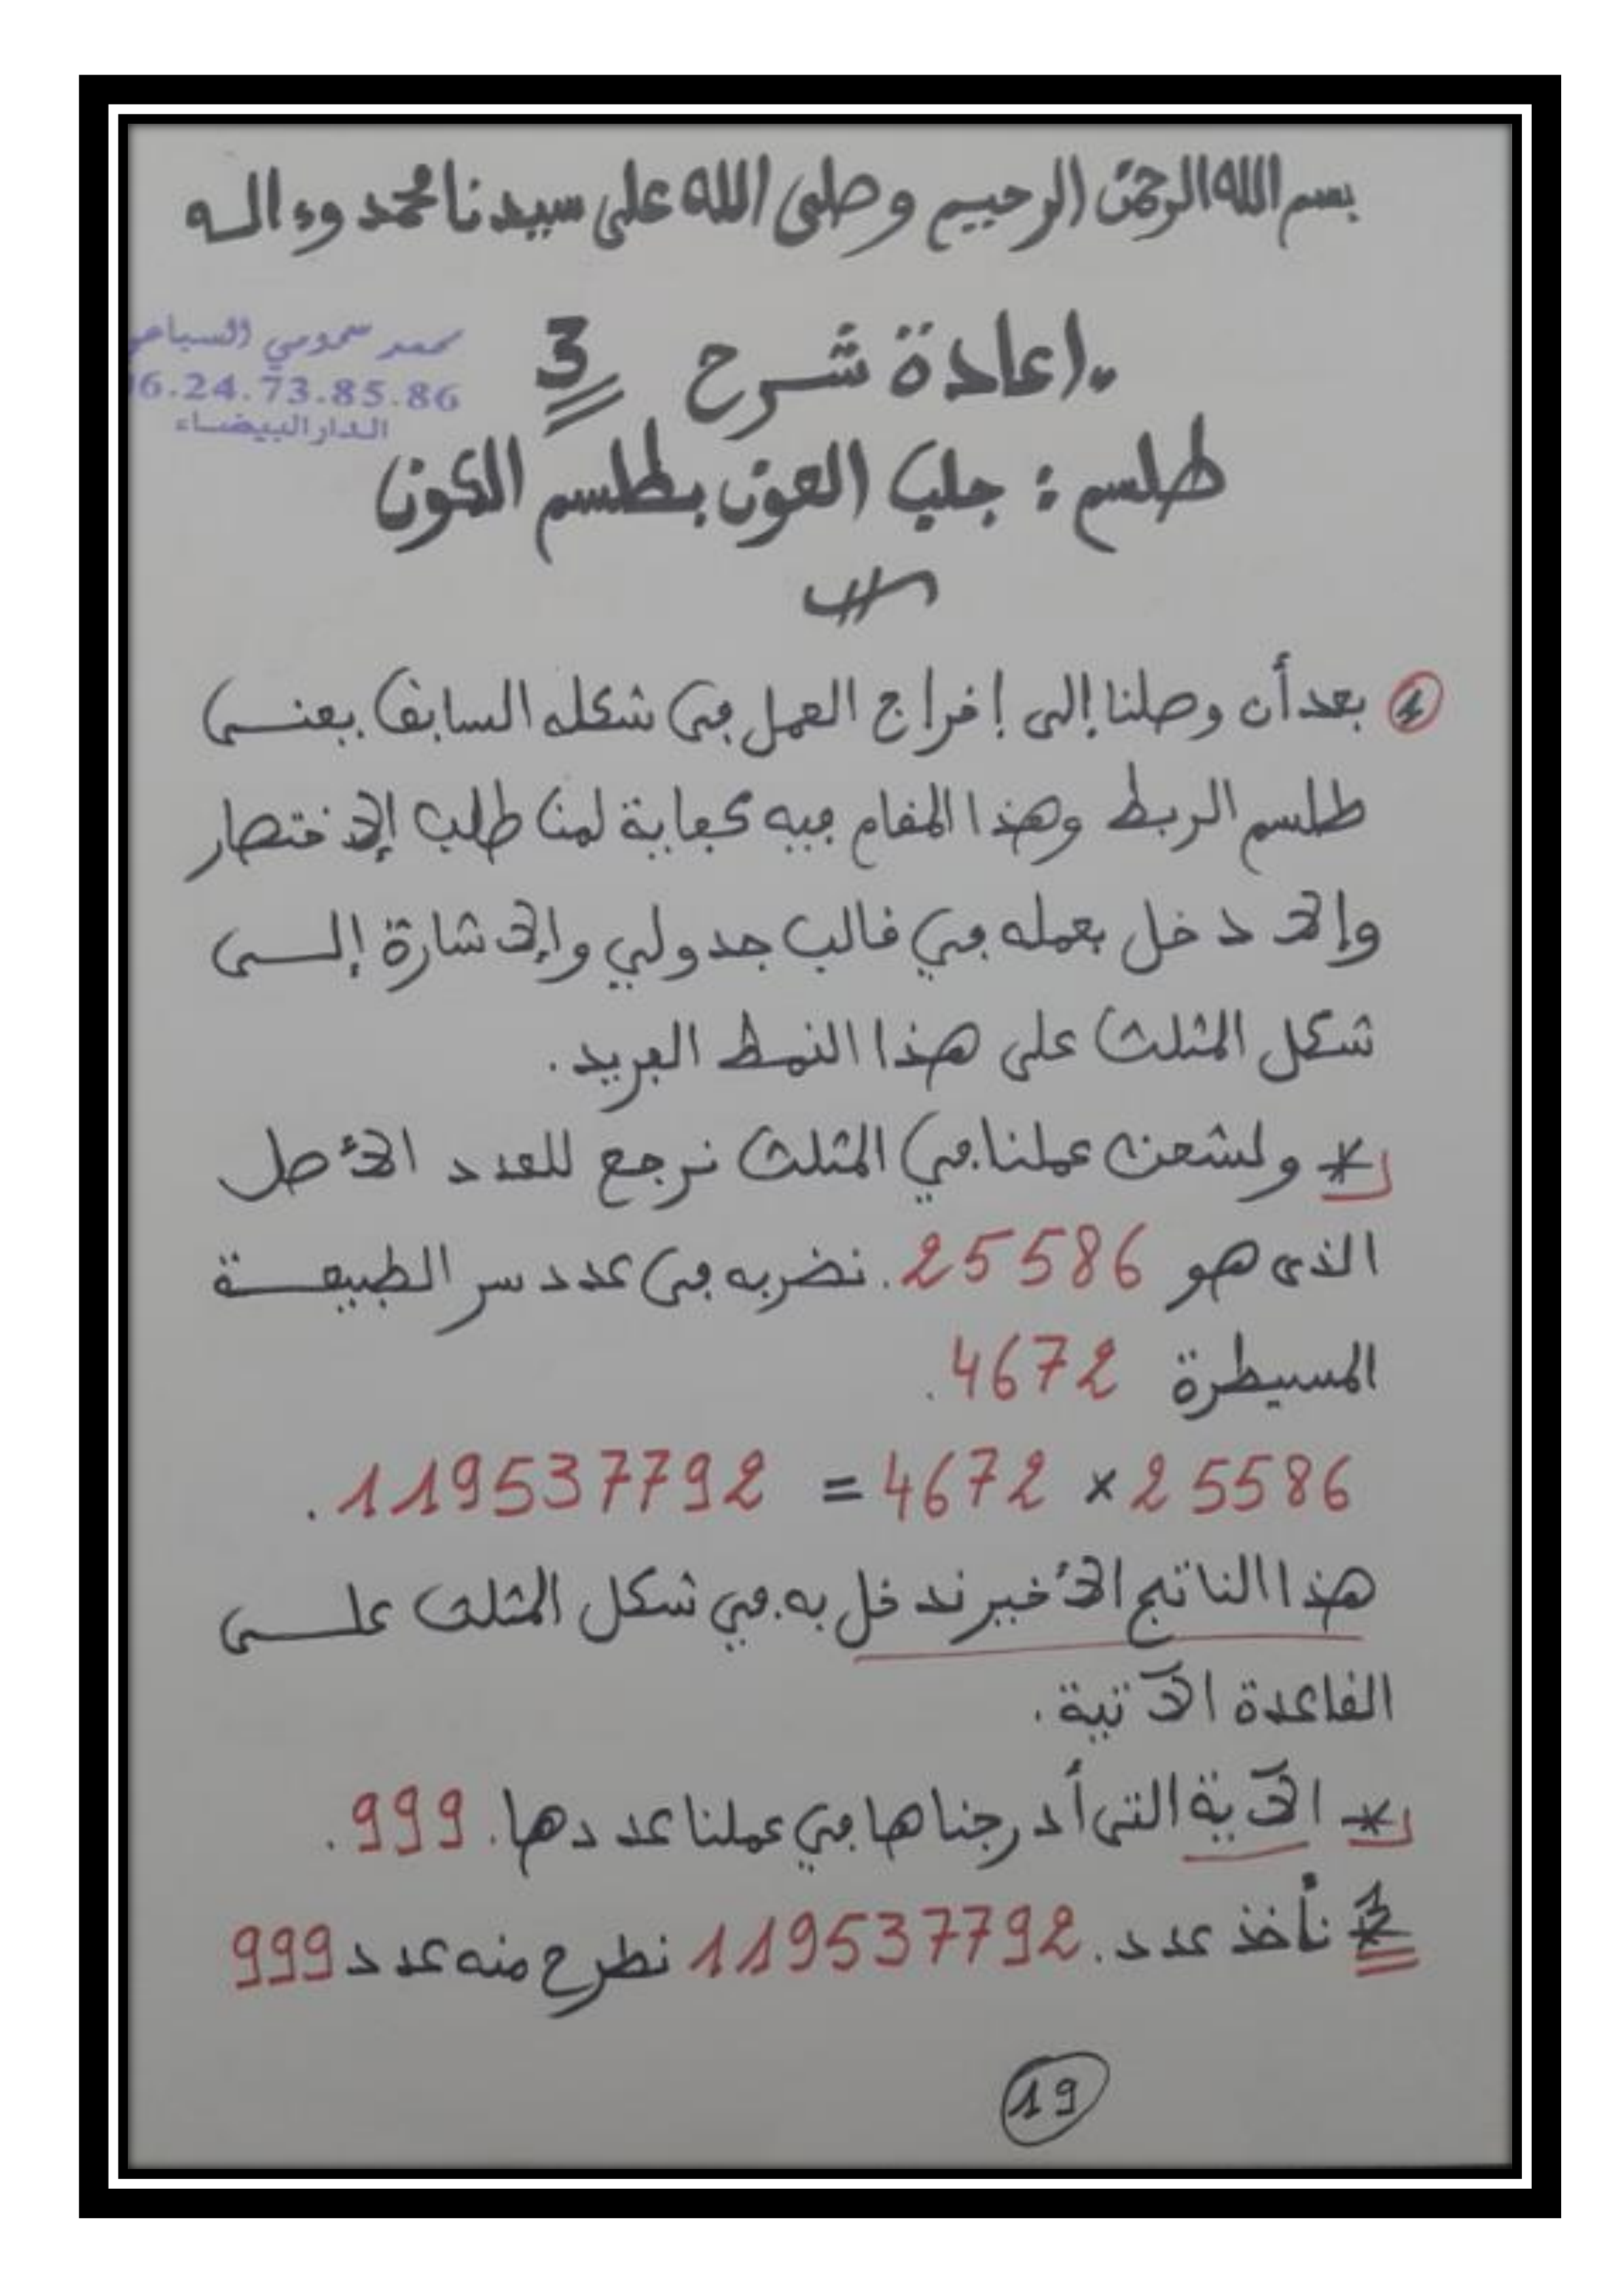 بسم الله الرحمن الرحيم وصلى الله على سيدنا محمد وءاله
إعادة شرح 3
محمد سحمومي السباعي
06.24.73.85.86
الدار البيضاء
طلسم : جلب العون بطلسم الكون
1 بعد أن وصلنا إلى إخراج العمل في شكله السابق بعنى
طلسم الربط وهذا المقام فيه كفاية لمن طلب الإختصار
وإلا دخل بعمله في قالب جدولي والإشارة إلى
شكل المثلث على هذا النمط الفريد.
* ولشحن عملنا في المثلث نرجع للعدد الأصل
الذي هو 25586. نضربه في عدد سر الطبيعة
المسيطرة 4672.
25586 × 4672 = 119537792.
هذا الناتج الأخير ندخل به في شكل المثلث على
القاعدة الآتية.
* الآية التى أدرجناها في عملنا عددها. 999.
1* نأخذ عدد. 119537792 نطرح منه عدد 999
19